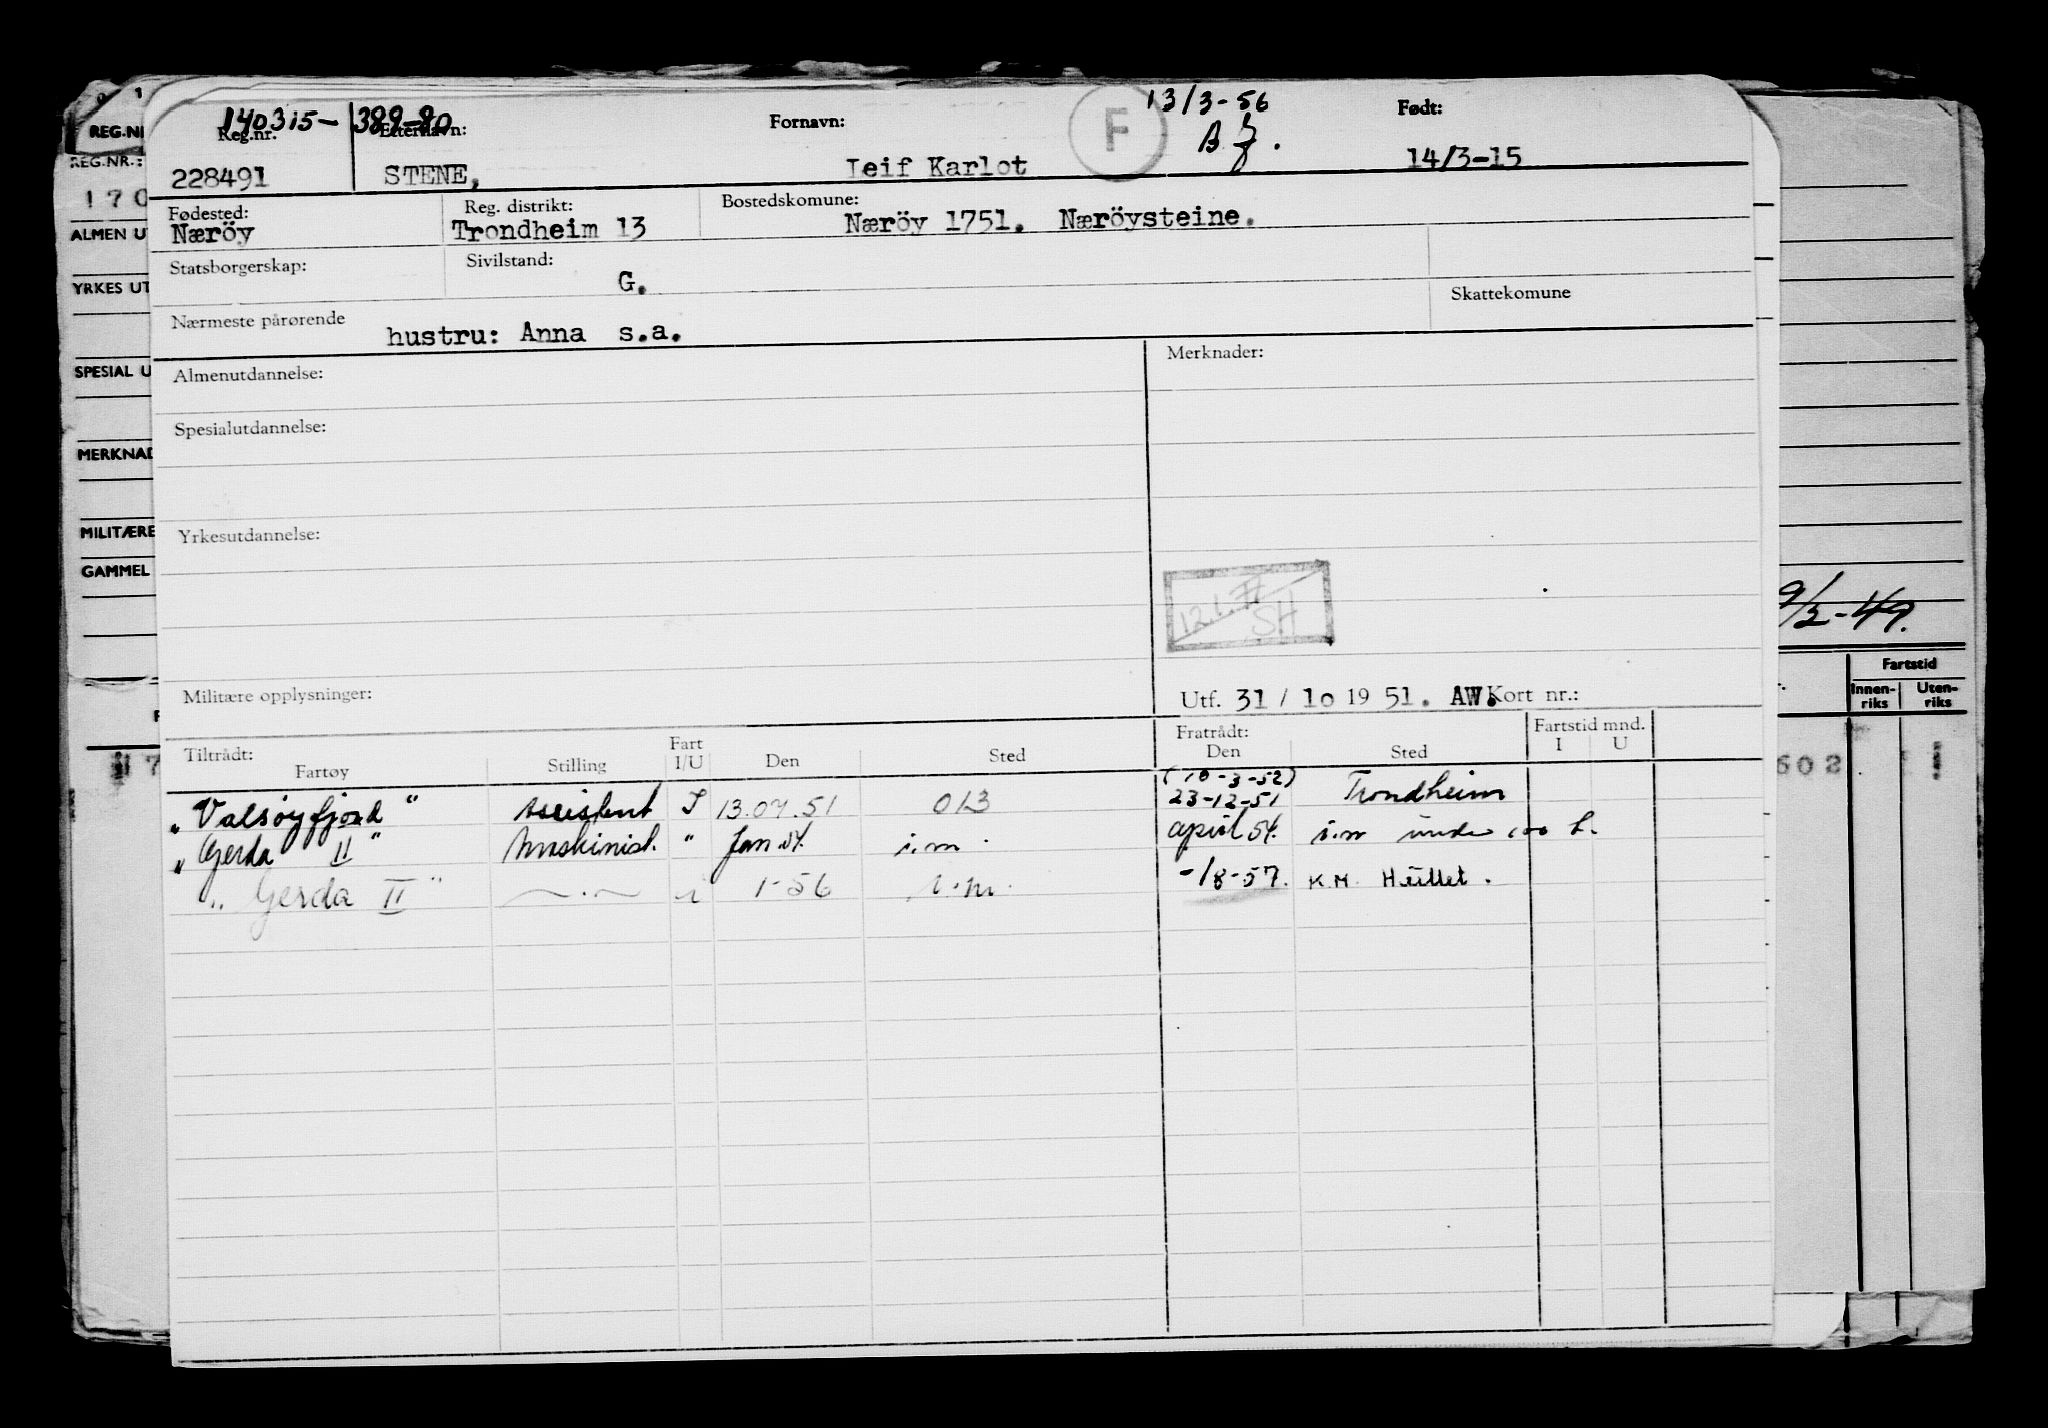 140315-38980 13/3-56
Reg.nr. Etternavn: Fornavn: F Født:
228491 STENE, Leif Karlot 14/3-15
Fødested: Reg. distrikt: Bostedskomune:
Næröy Trondheim 13 Næröy 1751. Næröysteine.
Statsborgerskap: Sivilstand: G.
Skattekomune
Nærmeste pårørende hustru: Anna s.a.
Almenutdannelse: Merknader:
Spesialutdannelse:
Yrkesutdannelse:
SH
Militære opplysninger: Utf. 31 / 10 19 51. AW. Kort nr.:
Tiltrådt: Fart Fratrådt: Fartstid mnd.
Fartøy Stilling I/U Den Sted Den Sted I U
(10-3-52)
"Valsöyfjord" Assistent I 13.07.51 013 23-12-51 Trondheim
"Gerda II" Maskinist. " Jan 54. i.m. april 54. i.m under 100 h.
"Gerda II" —.— i 1-56 i.m. -/8-57. K.M. Hullet.
REG.NR
REG.NR.:
170
ALMEN UT
YRKES UT
SPESIAL U
MERKNAD
MILITÆRE
GAMMEL
9/2-49.
Fartstid
Innen-riks Uten-riks
602